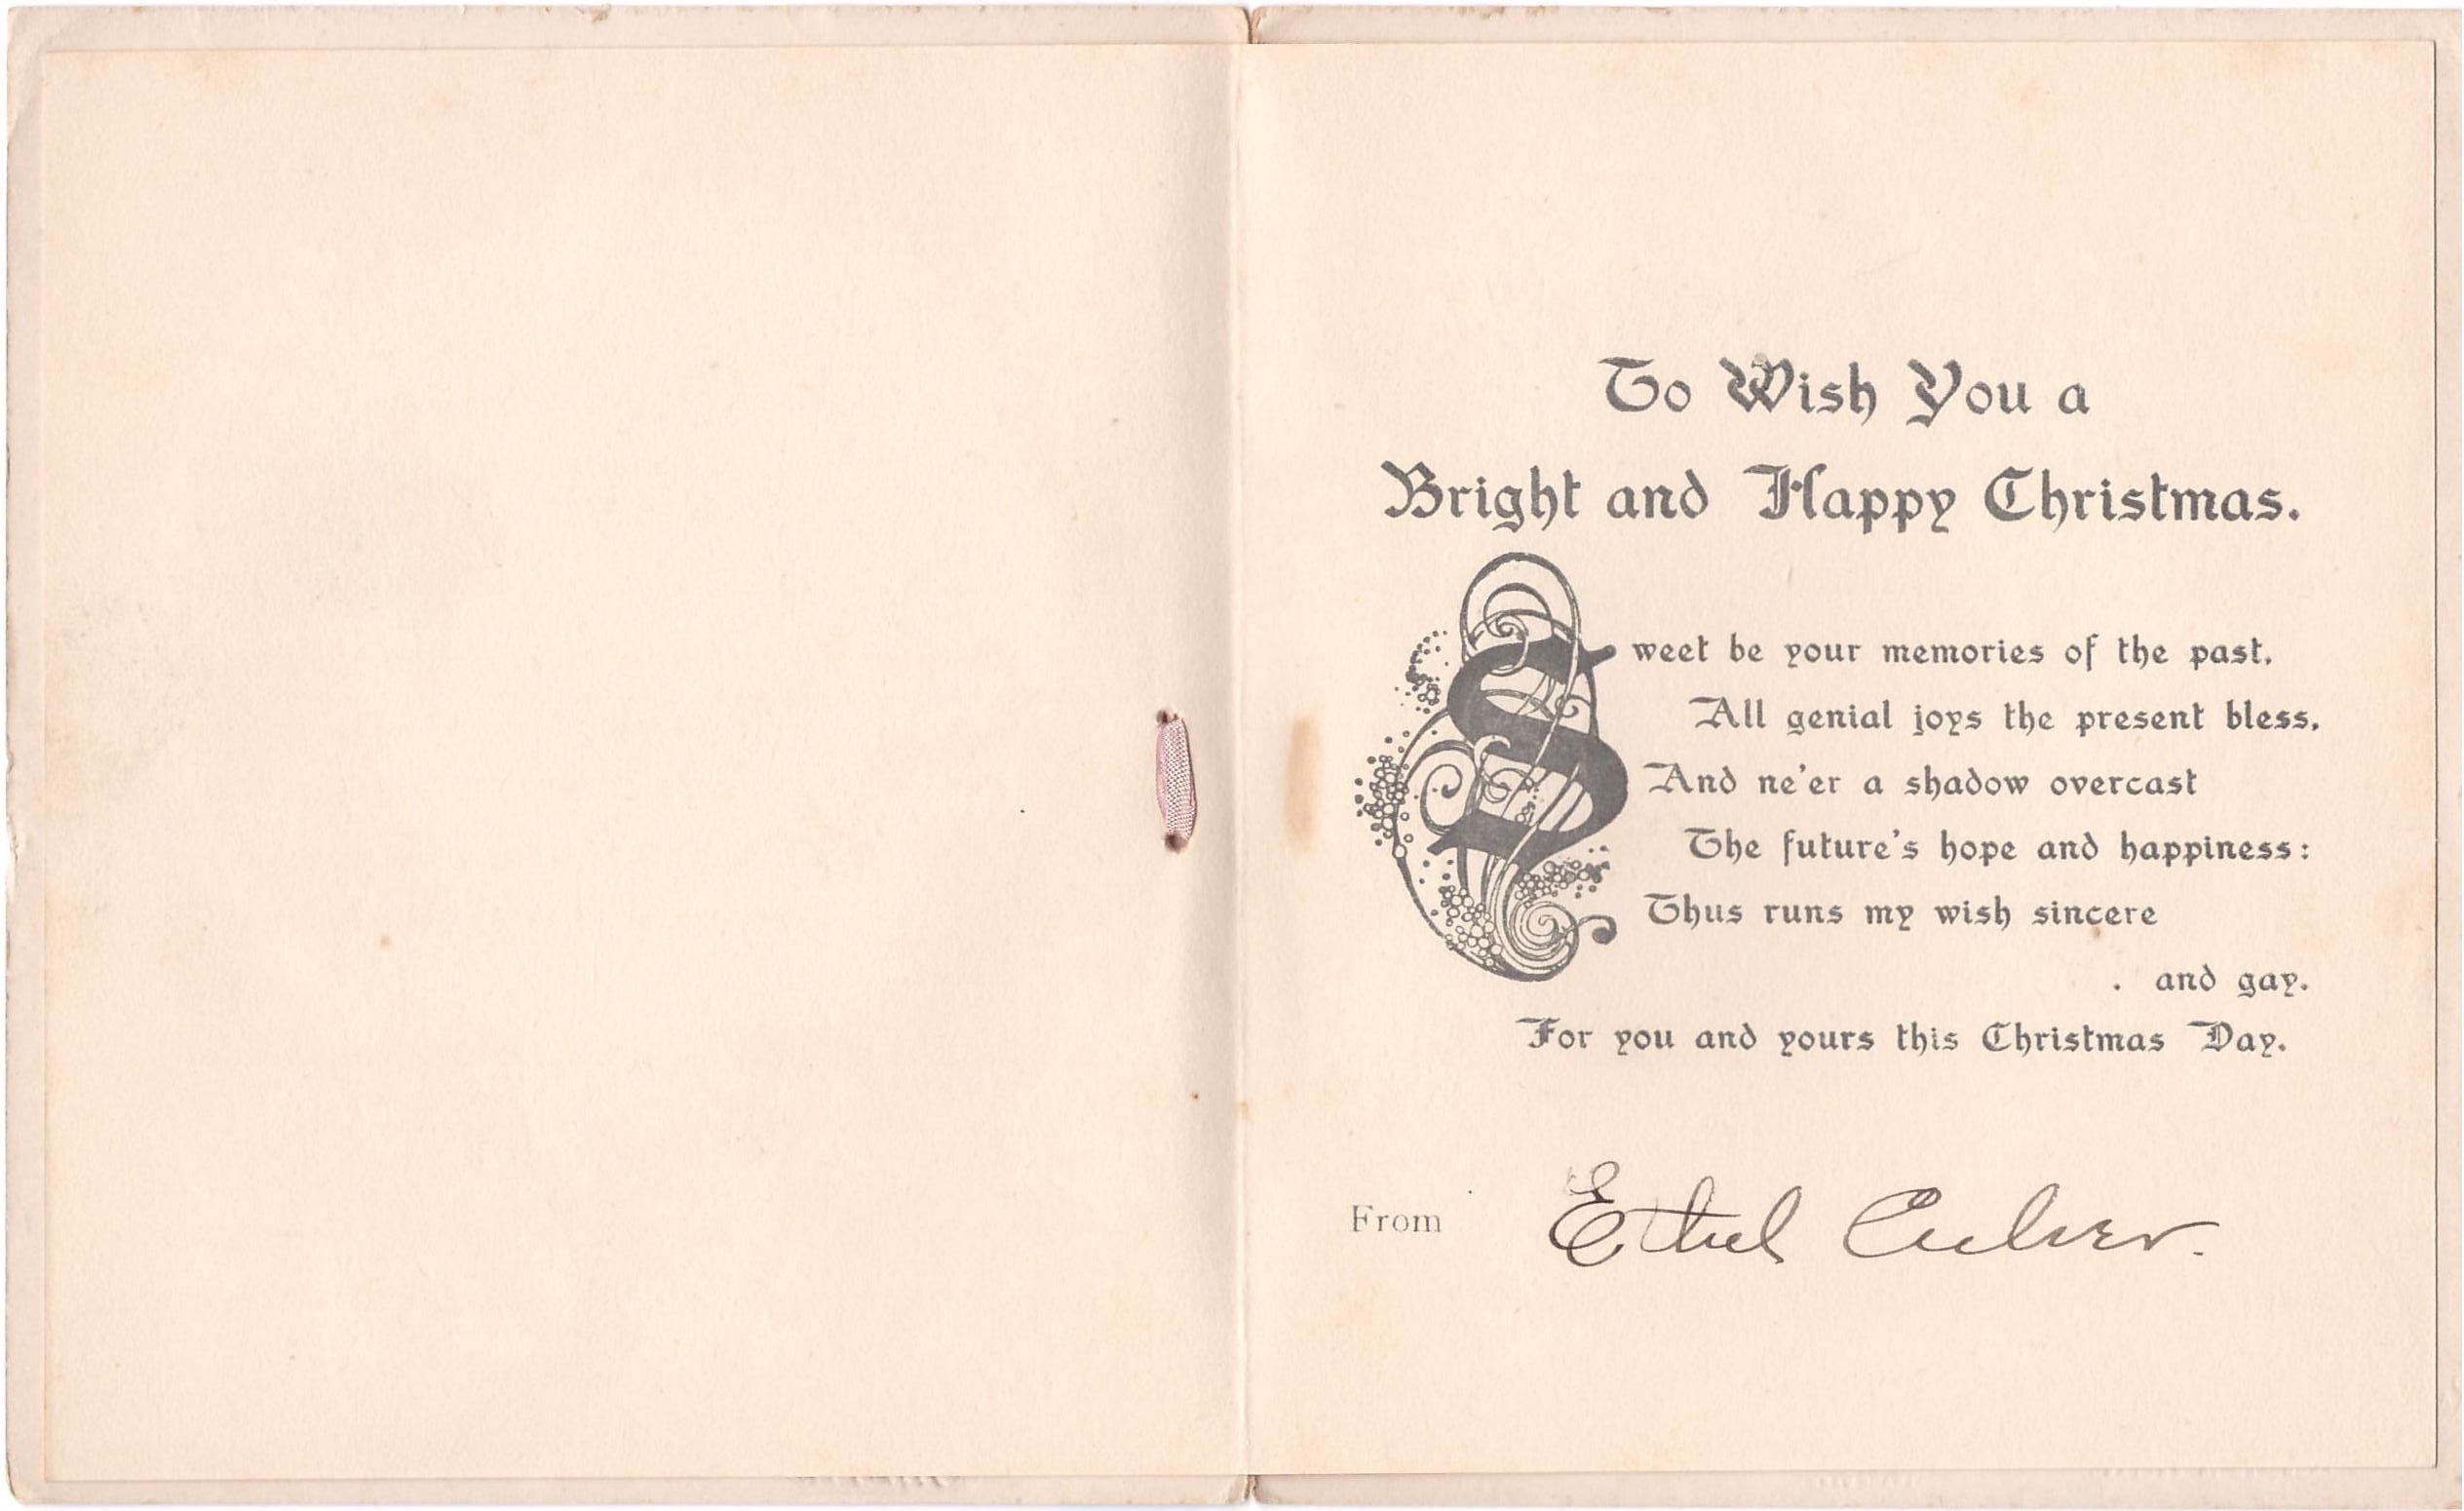 To Wish You a
Bright and Happy Christmas.
Sweet be your memories of the past,
All genial joys the present bless,
And ne'er a shadow overcast
The future's hope and happiness:
Thus runs my wish sincere
. and gay.
For you and yours this Christmas Day.
From Ethel Culver.